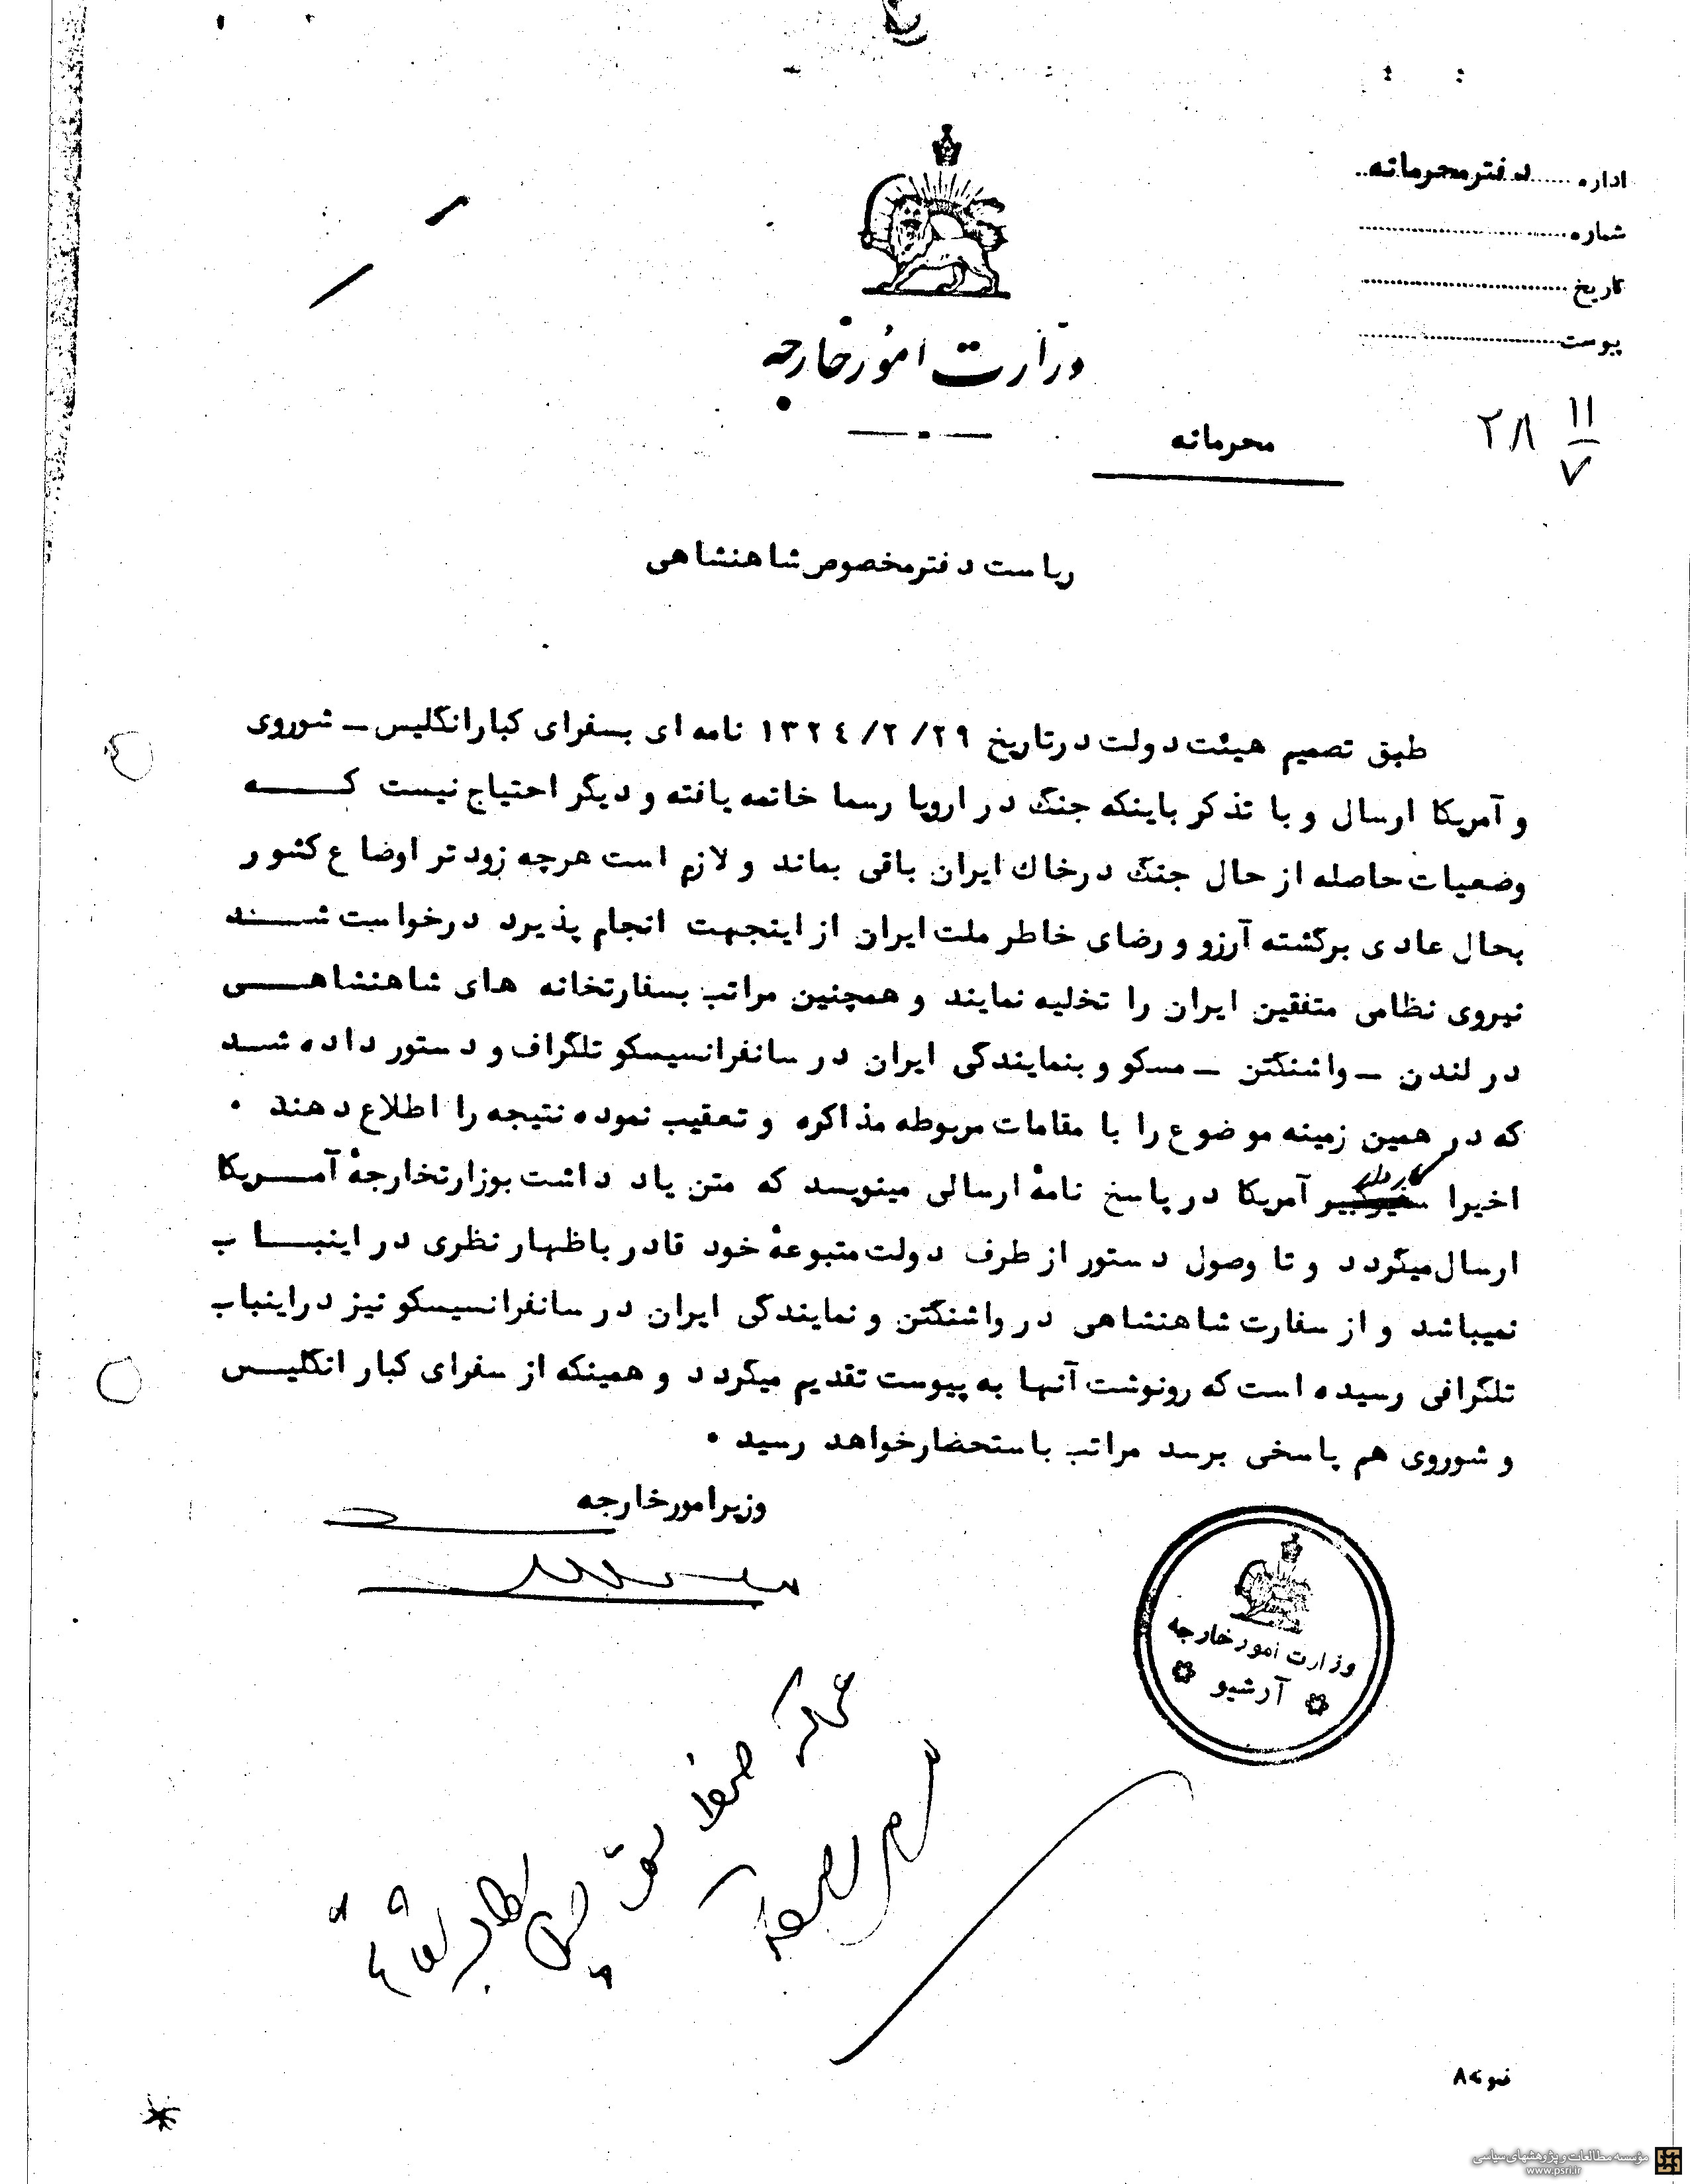 اداره دفترمحرمانه
شماره
تاریخ
پیوست
وزارت امور خارجه
محرمانه
۲۸ ۱۱/۷
ریاست دفترمخصوص شاهنشاهی
طبق تصمیم هیئت دولت درتاریخ ۱۳۲٤/۲/۲۹ نامه ای بسفرای کبارانگلیس ـ شوروی
و آمریکا ارسال و با تذکر باینکه جنگ در اروپا رسما خاتمه یافته و دیگر احتیاج نیست کـــه
وضعیات حاصله از حال جنگ درخاك ایران باقی بماند و لازم است هرچه زودتر اوضاع کشور
بحال عادی برگشته آرزو و رضای خاطر ملت ایران از اینجهت انجام پذیرد درخواست شـــد
نیروی نظامی متفقین ایران را تخلیه نمایند و همچنین مراتب بسفارتخانه های شاهنشاهـــی
در لندن ـ واشنگتن ـ مسکو و بنمایندگی ایران در سانفرانسیسکو تلگراف و دستور داده شـد
که در همین زمینه موضوع را با مقامات مربوطه مذاکره و تعقیب نموده نتیجه را اطلاع دهند ۰
اخیرا کاردار آمریکا در پاسخ نامهٔ ارسالی مینویسد که متن یاد داشت بوزارتخارجهٔ آمـریکا
ارسال میگردد و تا وصول دستور از طرف دولت متبوعهٔ خود قادر باظهار نظری در اینبـــاب
نمیباشد و از سفارت شاهنشاهی در واشنگتن و نمایندگی ایران در سانفرانسیسکو نیز دراینباب
تلگرافی رسیده است که رونوشت آنها به پیوست تقدیم میگردد و همینکه از سفرای کبار انگلیـس
و شوروی هم پاسخی برسد مراتب باستحضارخواهد رسید ۰
وزیرامورخارجه
وزارت امور خارجه
آرشیو
نمونه ۸
مؤسسه مطالعات و پژوهشهای سیاسی
www.psri.ir